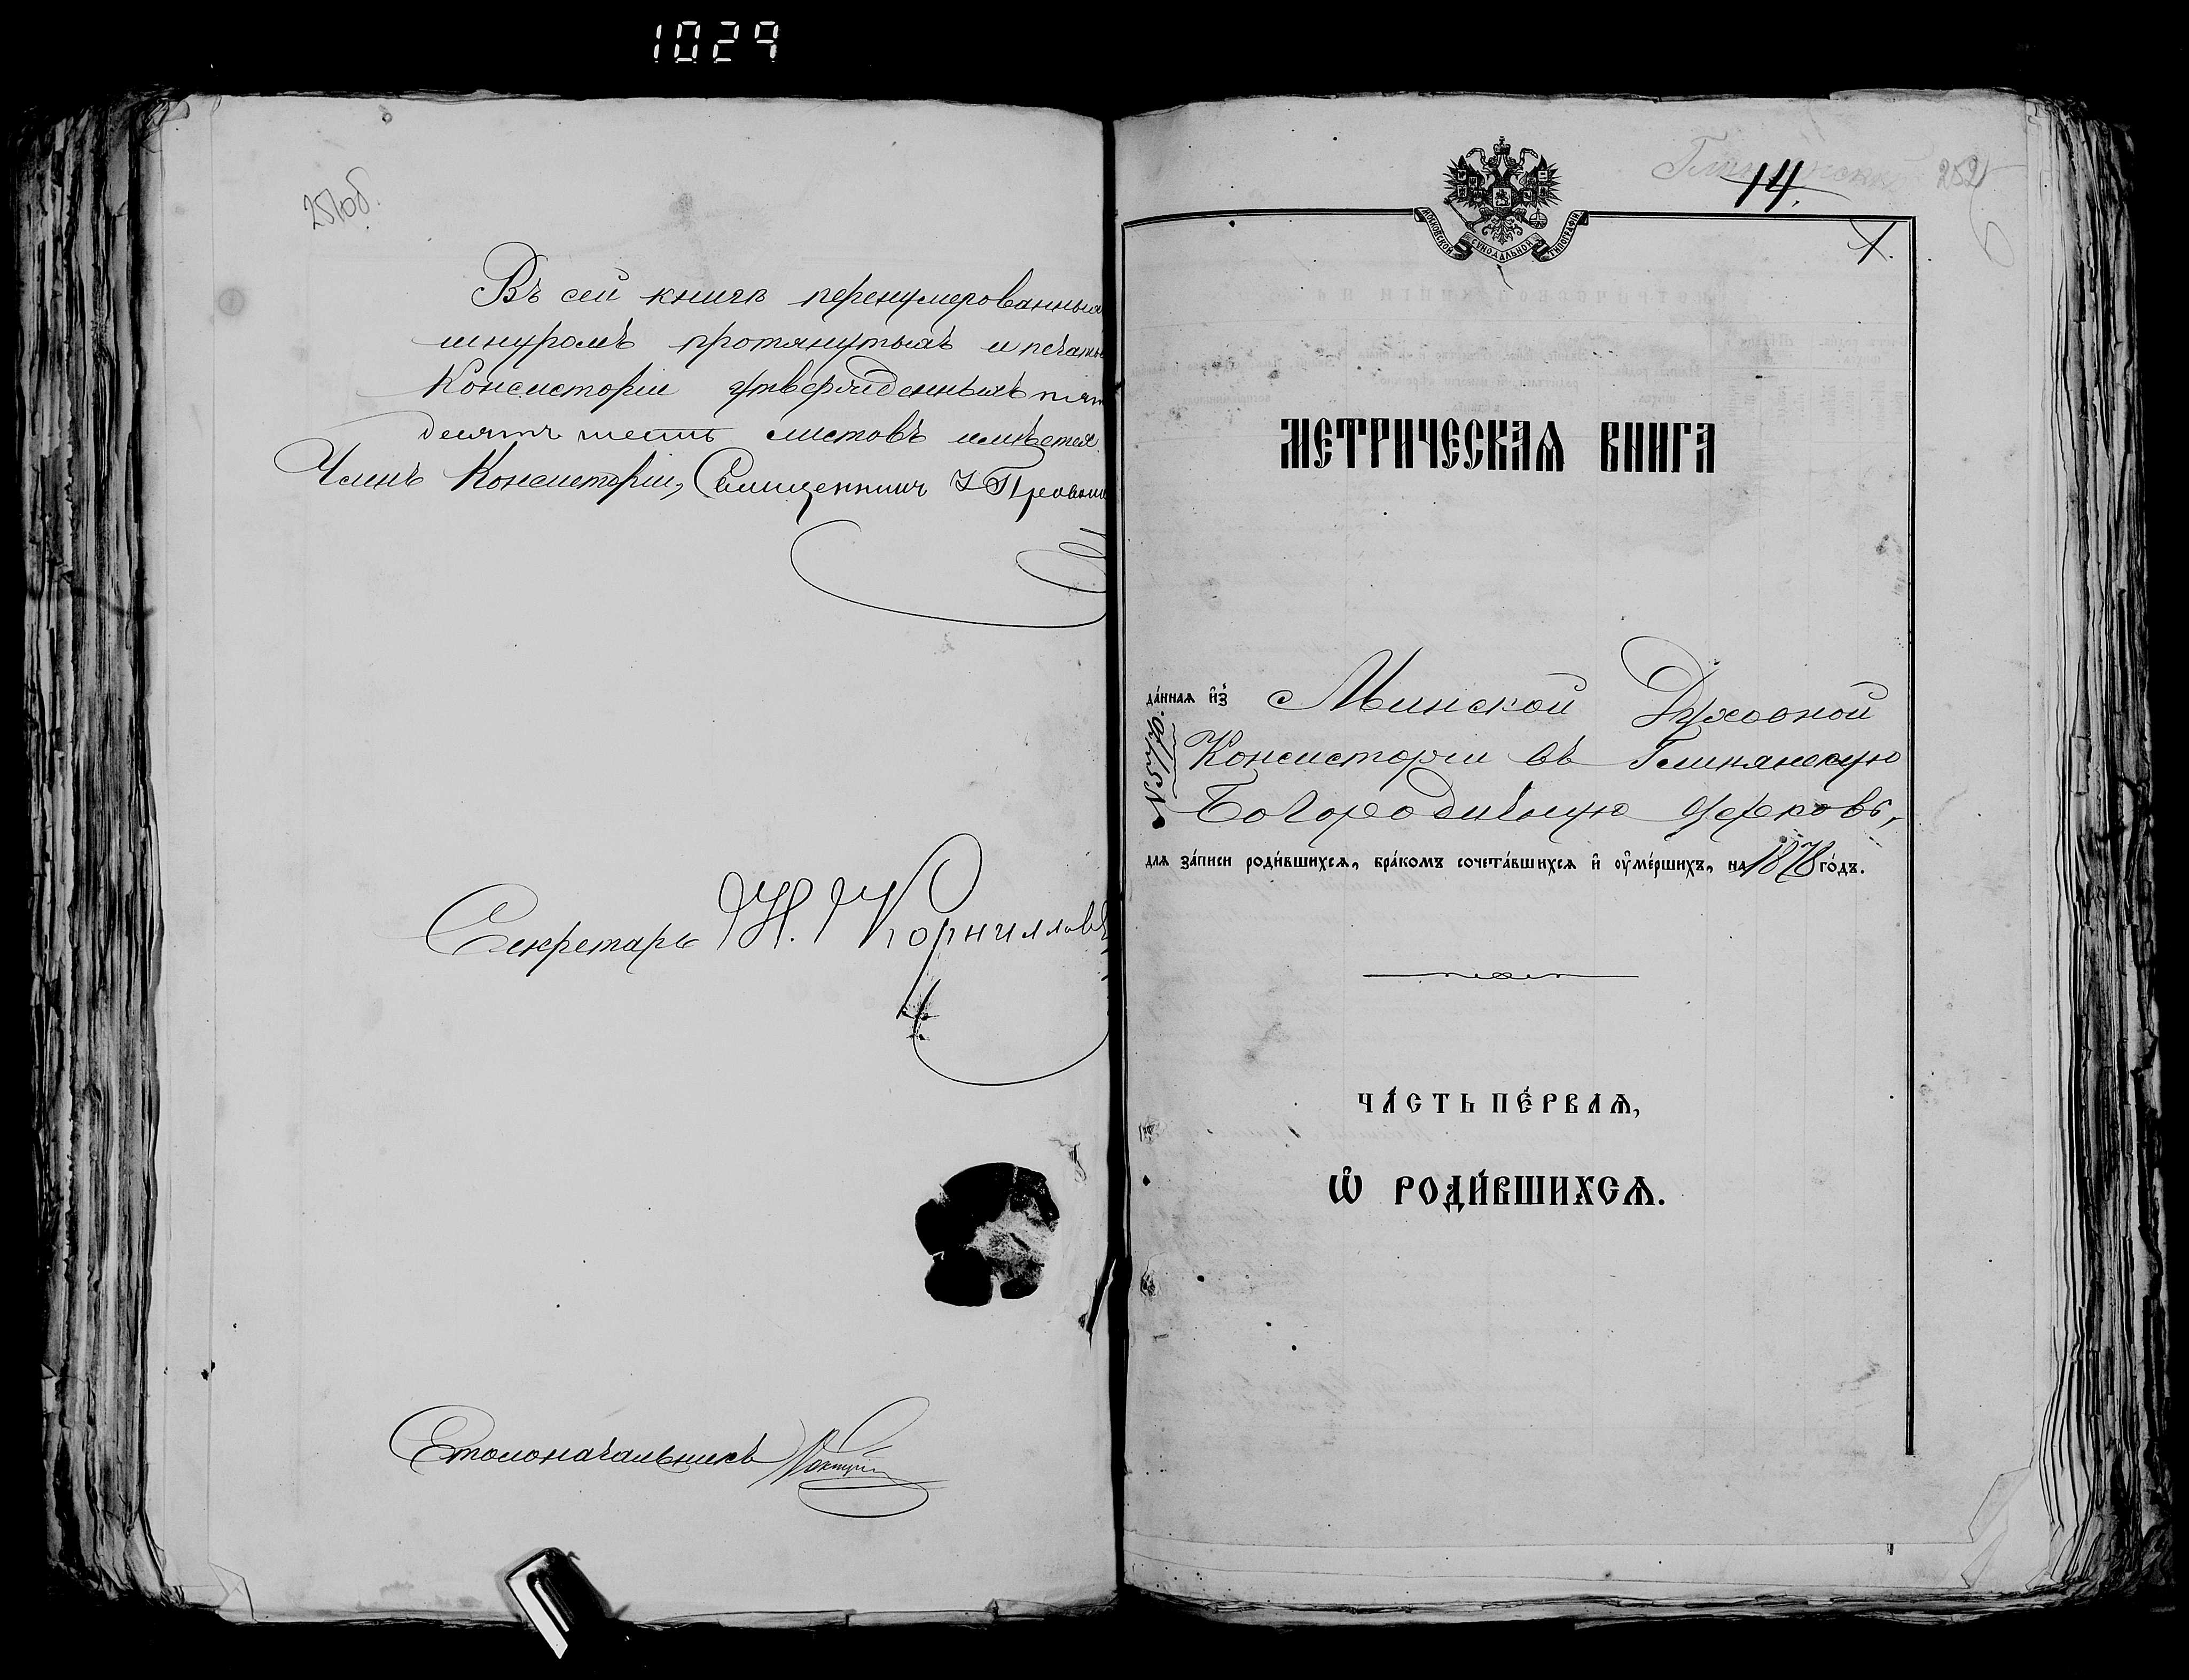 1029
251об.
Въ сей книгѣ перенумерованныхъ
шнуромъ протянутыхъ и печатью
Консисторіи утвержденныхъ пять
десятъ шесть листовъ имѣется.
Членъ Консисторіи, Священникъ І
Секретарь Н. Корнилловъ
Столоначальникъ
14.
252
МОСКОВСКОЙ СѴНОДАЛЬНОЙ ТИПОГРАФІИ
1.
МЕТРИЧЕСКАѦ КНИГА
да́ннаѧ и҆з̾ Минской Духовной
Консисторіи въ Глинянскую
Богородичную церковь,
длѧ за́писи роди́вшихсѧ, бра́комъ сочета́вшихсѧ и҆ оу҆ме́ршихъ, на 1878 го́дъ.
ЧА́СТЬ ПЕ́РВАѦ,
Ѽ РОДИ́ВШИХСѦ.